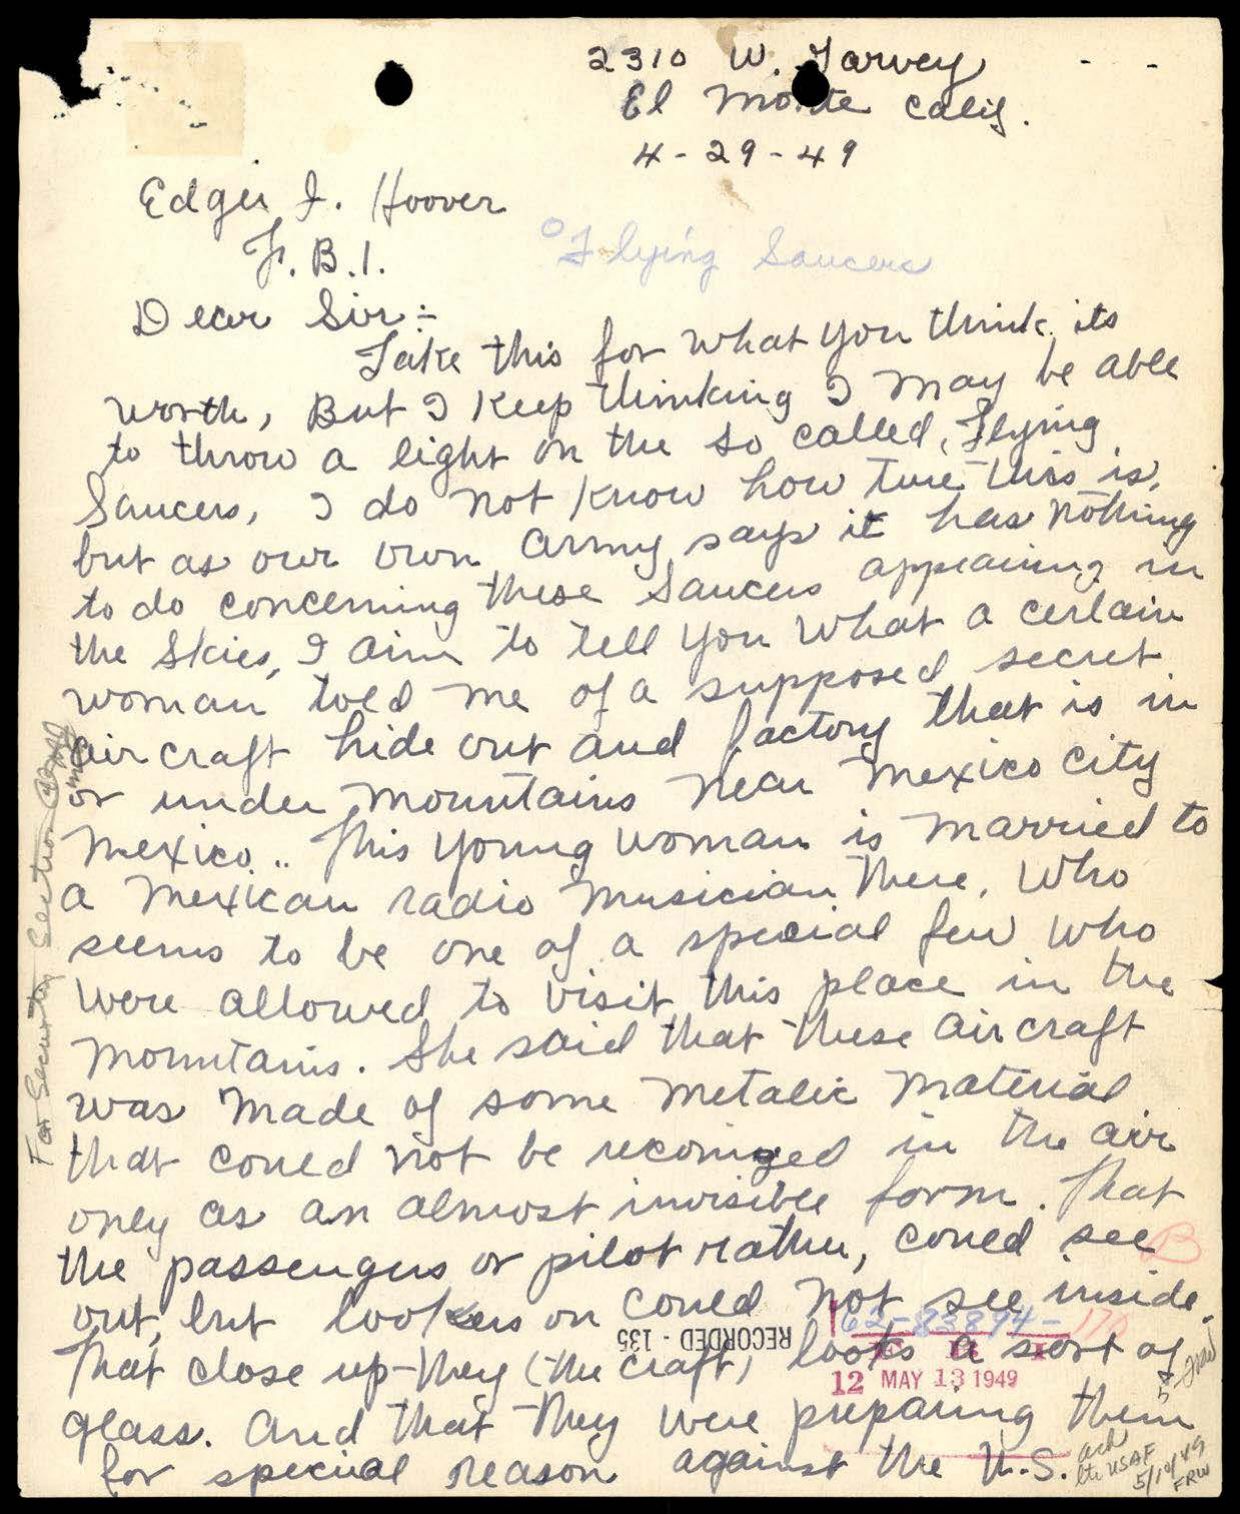 2310 W. Garvey
El Monte Calif.
4-29-49
Edger J. Hoover
F.B.I.
Flying Saucers
Dear Sir:-
Take this for what you think its
worth, But I Keep thinking I may be able
to throw a light on the so called, Flying
Saucers, I do not know how ture this is,
but as our own Army says it has nothing
to do concerning these Saucers appearing in
the Skies, I aim to tell you what a certain
woman told me of a supposed secret
air craft hide out and factory that is in
or under mountains near Mexico City
Mexico.. This young woman is married to
a Mexican radio musician There, Who
seems to be one of a special few who
were allowed to visit this place in the
mountains. She said that these air craft
was made of some metalic material
that could not be reconized in the air
only as an almost invisible form. That
the passengers or pilot rather, could see
out, but lookers on could not see inside.
That close up-they (the craft) looks a sort of
glass. And that They were preparing them
for special reason against the U.S.
For Security Section
B
RECORDED - 135
62-83894-170
12 MAY 13 1949
ack
ltr USAF
5/10/49
FRW